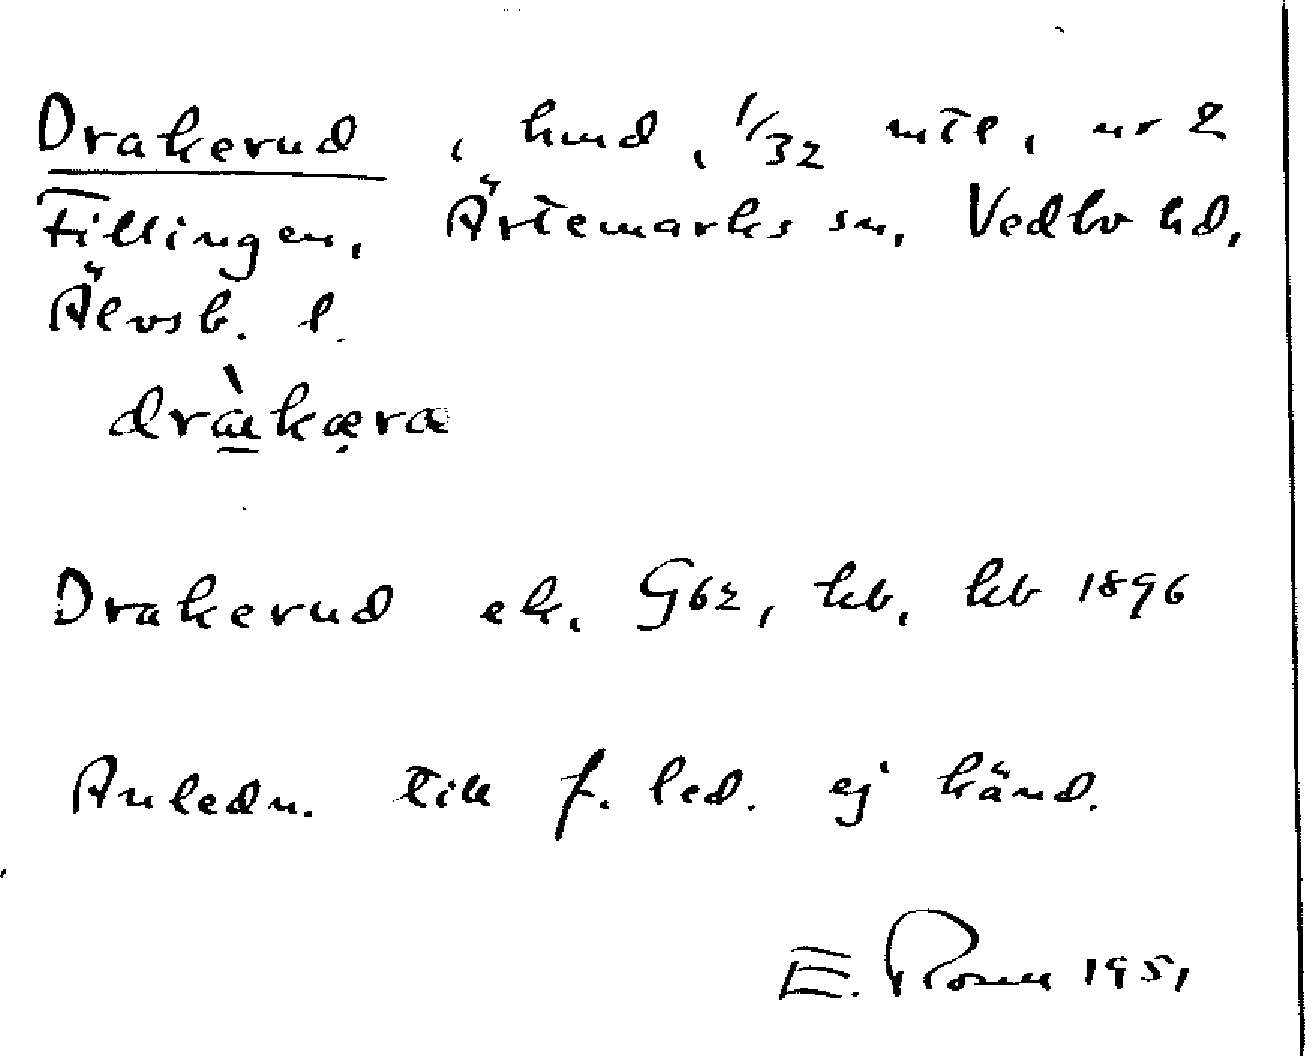 Drakerud, hmd, 1/32 mtl, nr 2
Fillingen, Ärtemarks sn, Vedbo hd,
Älvsb. l.
dràkæra
Drakerud ek. G62, kb, kb 1896
Anledn. till f. led. ej känd.
E. Rosell 1951